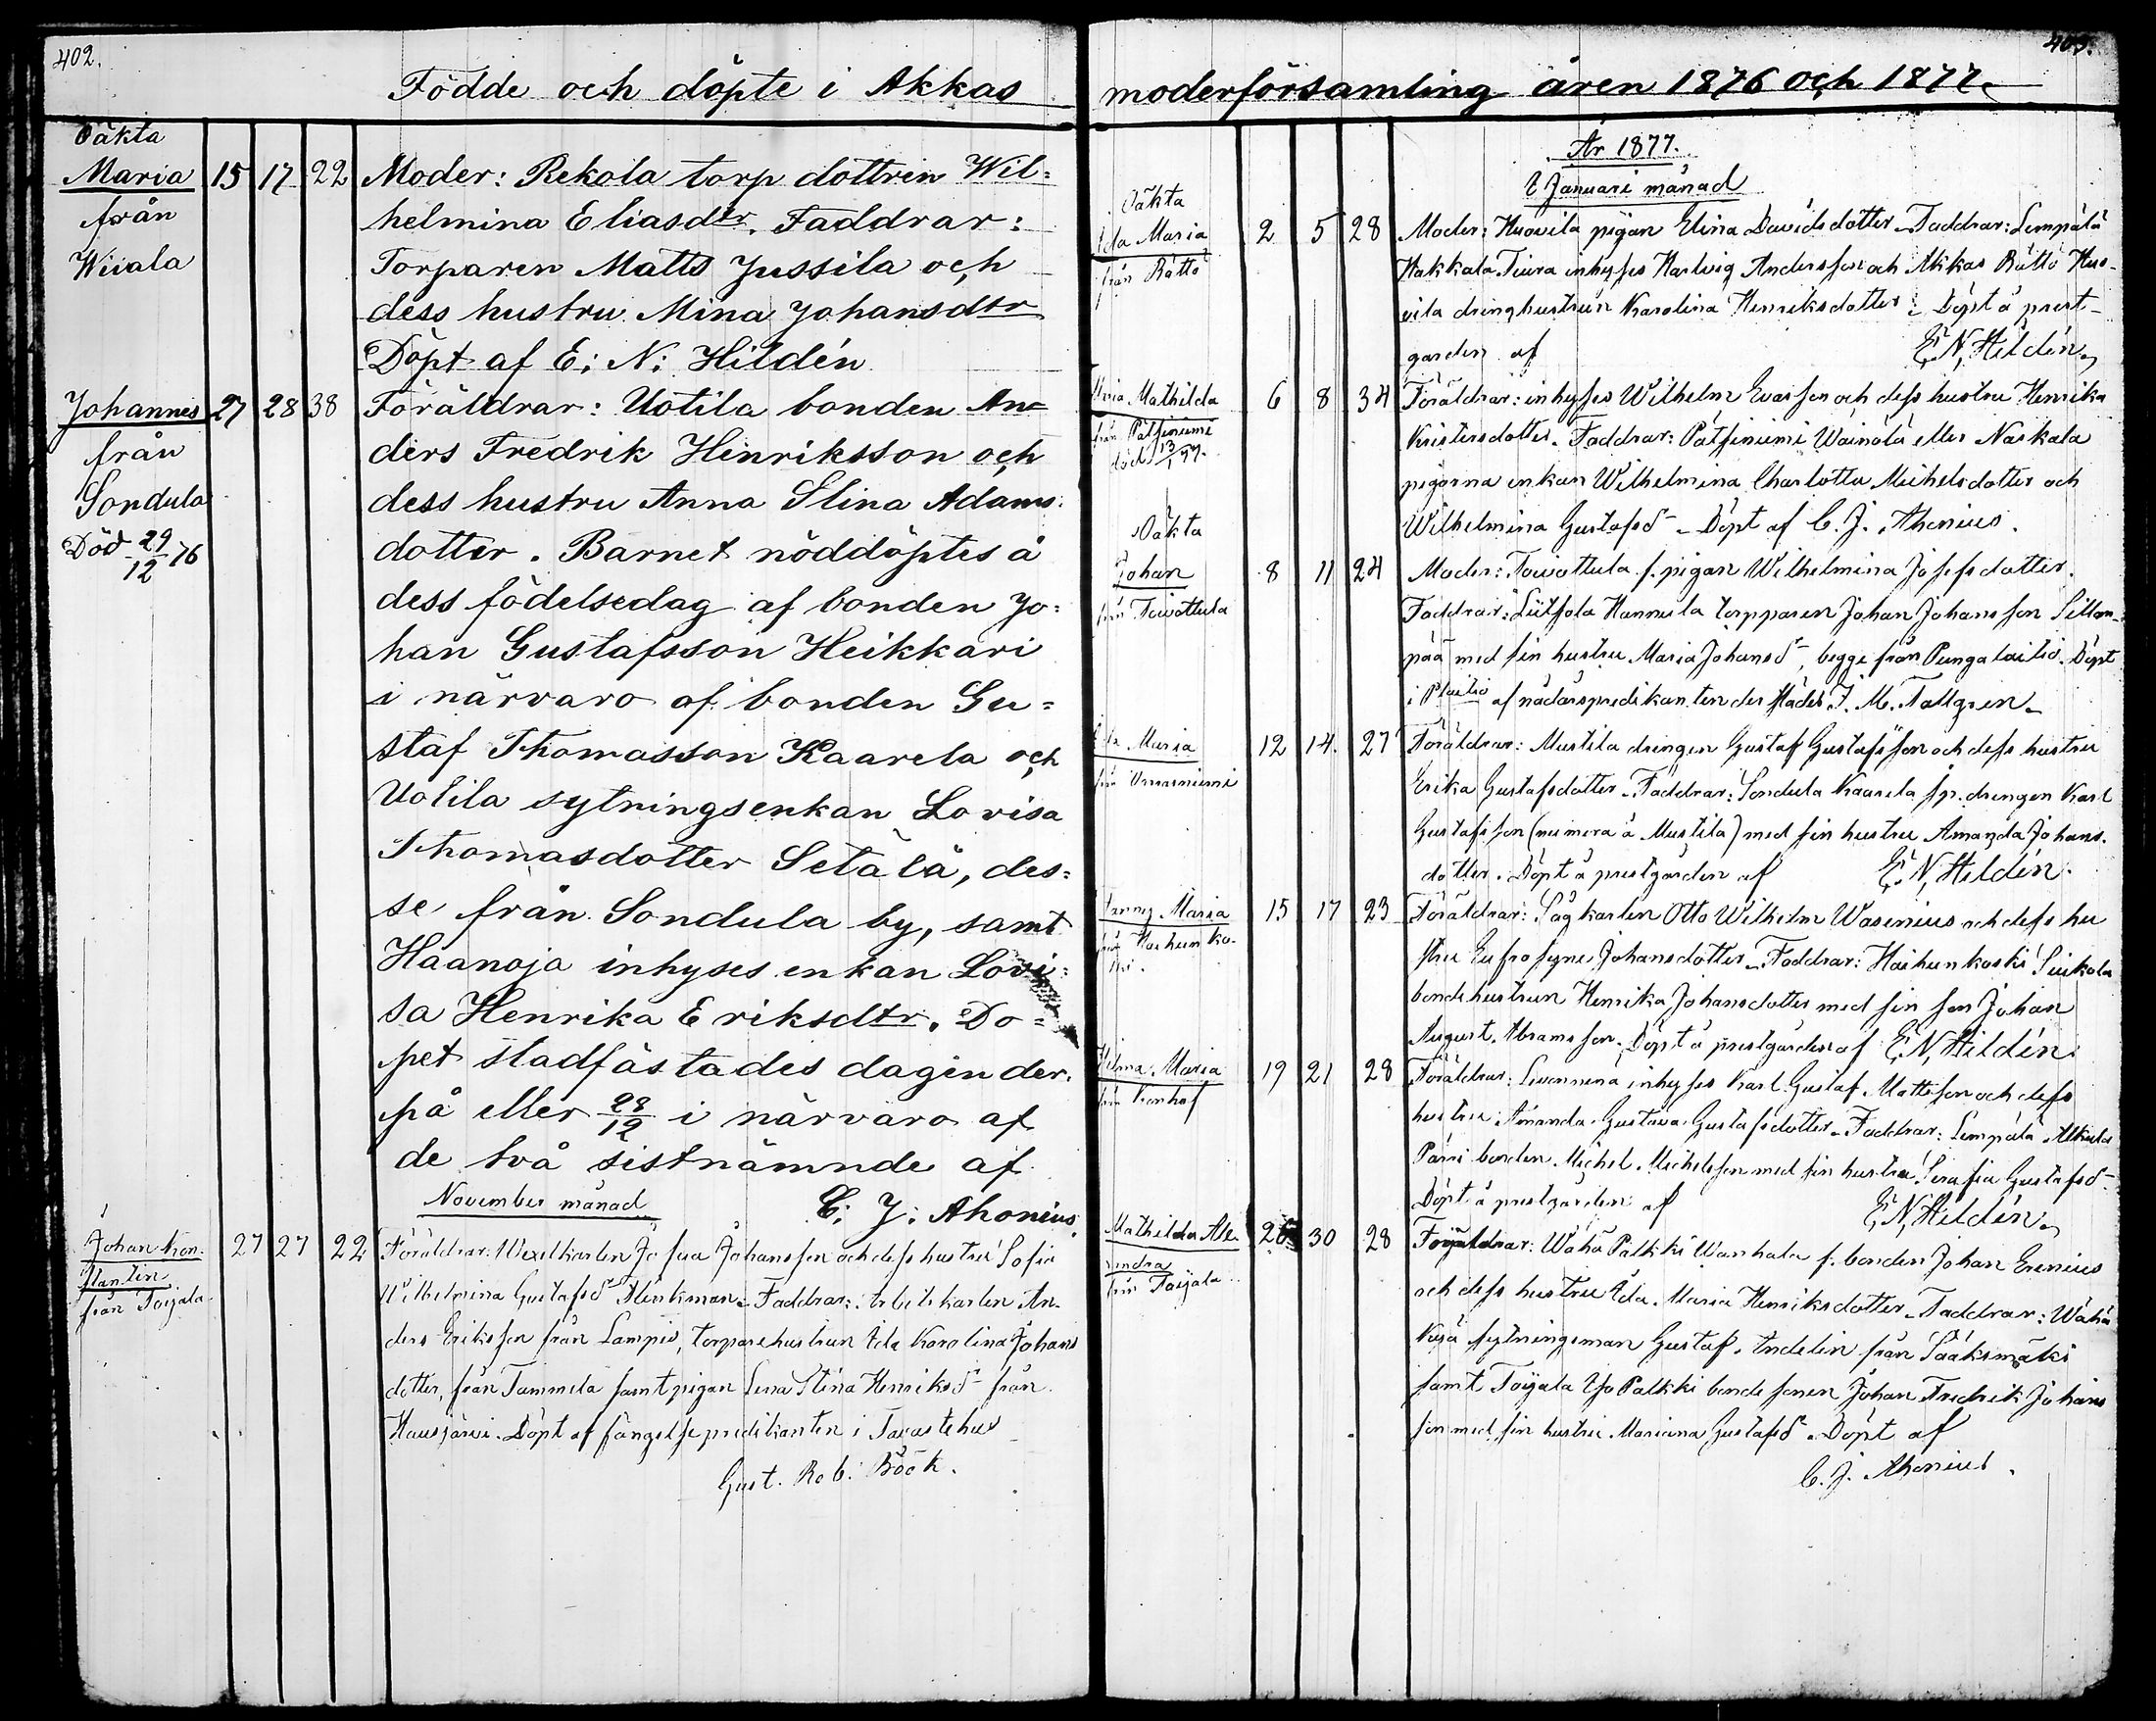 402.
Födde och döpte i Akkas
Oäkta
Maria 15 17 22 Moder: Rekola torp dottren Wil=
från helmina Eliasdtr. Faddrar:
Wiiala Torparen Matts Jussila och
dess hustru Mina Johansdtr
Döpt af E: N: Hildén
Johannes 27 28 38 Föräldrar: Uotila bonden An=
från ders Fredrik Hinriksson och
Sondula dess hustru Anna Stina Adams=
Död 29/12 76 dotter. Barnet nöddöptes å
dess födelsedag af bonden Jo=
han Gustafsson Heikkari
i närvaro af bonden Gu=
staf Thomasson Kaarela och
Uotila sytningsenkan Lovisa
Thomasdotter Setälä, des=
se från Sondula by, samt
Haanoja inhyses enkan Lovi=
sa Henrika Eriksdtr. Do=
pet stadfästades dagen der=
på eller 28/12 i närvaro af
de två sistnämnde af
November månad C: J: Ahonius
Johan Kon- 27 27 22 Föräldrar: Wexelkarlen Josua Johansson och dess hustru Sofia
stantin Wilhelmina Gustafsd Flinkman. Faddrar: Arbetskarlen An-
från Toijala ders Eriksson från Lampis, torparehustrun Ida Karolina Johans
dotter, från Tammela samt pigan Lena Stina Henriksd från
Hausjärvi. Döpt af fängelsepredikanten i Tavastehus
Gust. Rob. Böök.
403.
moderförsamling åren 1876 och 1877.
År 1877.
I Januari månad
Oäkta
Ida Maria 2 5 28 Moder: Huovila pigan Elina Davidsdotter. Faddrar: Lempälä
från Rättö Hakkala Tiura inhyses Hartvig Andersson och Akkas Rättö Huo-
vila drenghustrun Karolina Henriksdotter. Döpt å prest-
gården af E. N. Hildén
Mathilda 6 8 34 Föräldrar: inhyses Wilhelm Evasson och dess hustru Henrika
från Patsiniemi Kristersdotter. Faddrar: Patsiniemi Wainola eller Naskala
död 13/1 77. pigorna enkan Wilhelmina Charlotta Michelsdotter och
Wilhelmina Gustafsd. Döpt af C. J. Ahonius.
Oäkta
Johan 8 11 24 Moder: Toivottula f. pigan Wilhelmina Josefsdotter.
från Toivottula Faddrar: Hannula torpparen Johan Johansson Sillan-
pää med sin hustru Maria Johansd, begge från Pungalaitio. Döpt
i Plaitio af nådårspredikanten der städes J. M. Tallgren
Ida Maria 12 14. 27 Föräldrar: Mustila drengen Gustaf Gustafsson och dess hustru
från Erika Gustafsdotter. Faddrar: Sondula Kaarela sp. drengen Karl
Gustafsson (numera å Mustila) med sin hustru Amanda Johans-
dotter. Döpt å prestgården af E. N. Hildén.
Fanny Maria 15 17 23 Föräldrar: Sågkarlen Otto Wilhelm Wasenius och dess hu
från Haihunko- stru Eufrosyne Johansdotter. Faddrar: Haihunkoski Suikola
ski. bondehustrun Henrika Johansdotter med sin son Johan
August Abramsson. Döpt å prestgården af E. N. Hildén
Hilma Maria 19 21 28 Föräldrar: inhyses Karl Gustaf Mattsson och dess
från Kronhof hustru Amanda Gustava Gustafsdotter. Faddrar: Lempälä
bonden Michel Michelsson med sin hustru Serafia Gustafsd
Döpt å prestgården af E. N. Hildén
Mathilda Ale- 26 30 28 Föräldrar: Wähä Palkki Wanhala f. bonden Johan Erenius
xandra och dess hustru Ida Maria Henriksdotter. Faddrar: Wähä
från Toijala sytningsman Gustaf Andelin från Sääksmäki
samt Toijala Yso Palkki bonde sonen Johan Fredrik Johans
son med sin hustru Mariana Gustafsd. Döpt af
C. J. Ahonius.